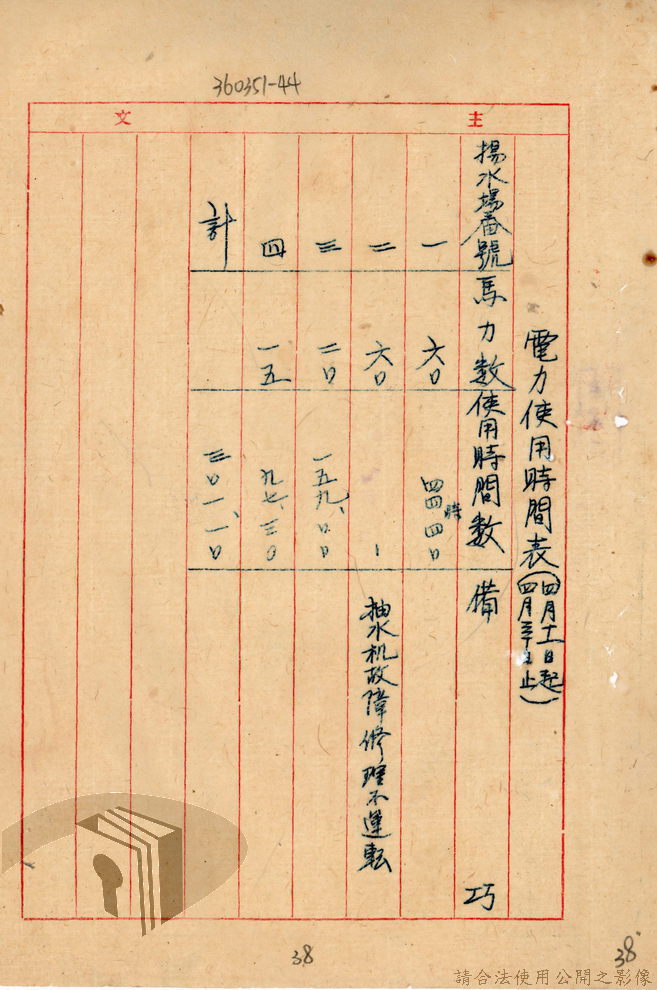 360351-44
主文
電力使用時間表(四月十一日起
四月三十日止)
揚水場番號 馬力数 使用時間数 備巧
一 六〇 四四時四〇
二 六〇 〡 抽水机故障修理不運転
三 二〇 一五九、〇〇
四 一五 九七、三〇
計 三〇一、一〇
38
38
請合法使用公開之影像